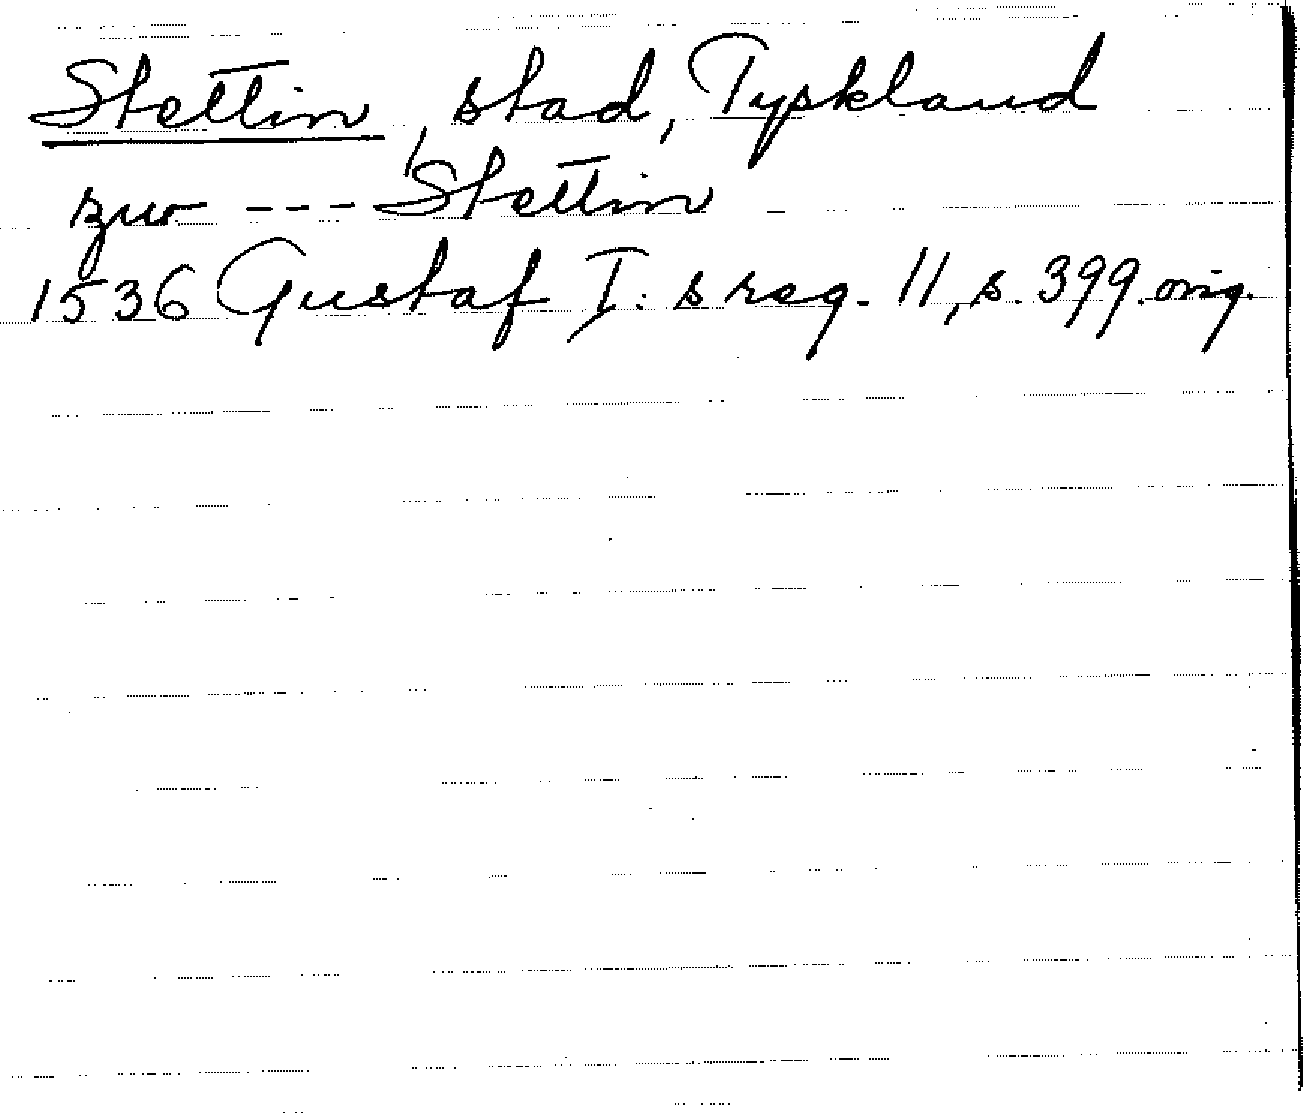 Stettin, stad, Tyskland
zuw --- Stettin
1536 Gustaf I:s reg. 11, s. 399. orig.